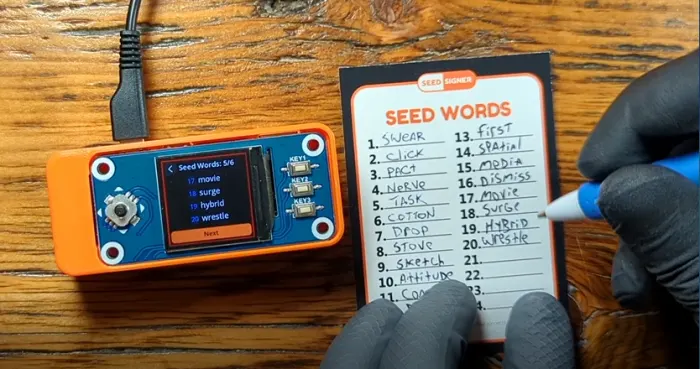 Seed Words: 5/6
17 movie
18 surge
19 hybrid
20 wrestle
Next
KEY1
KEY2
KEY3
SEED SIGNER
SEED WORDS
1. SWEAR
2. Click
3. PACT
4. Nerve
5. TASK
6. COTTON
7. DROP
8. STOVE
9. Sketch
10. Attitude
11.
13. First
14. SPATIAL
15. MEDIA
16. DISMISS
17. MOVIE
18. SURGE
19. HYBRID
20. WRESTLE
21.
22.
23.